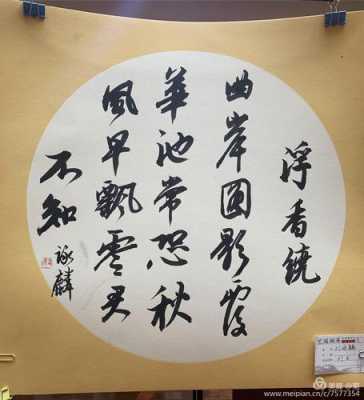 浮香繞
曲岸圓影覆
華池常恐秋
風早飄零君
不知
詠麟
www.meipian.cn/c/7577354